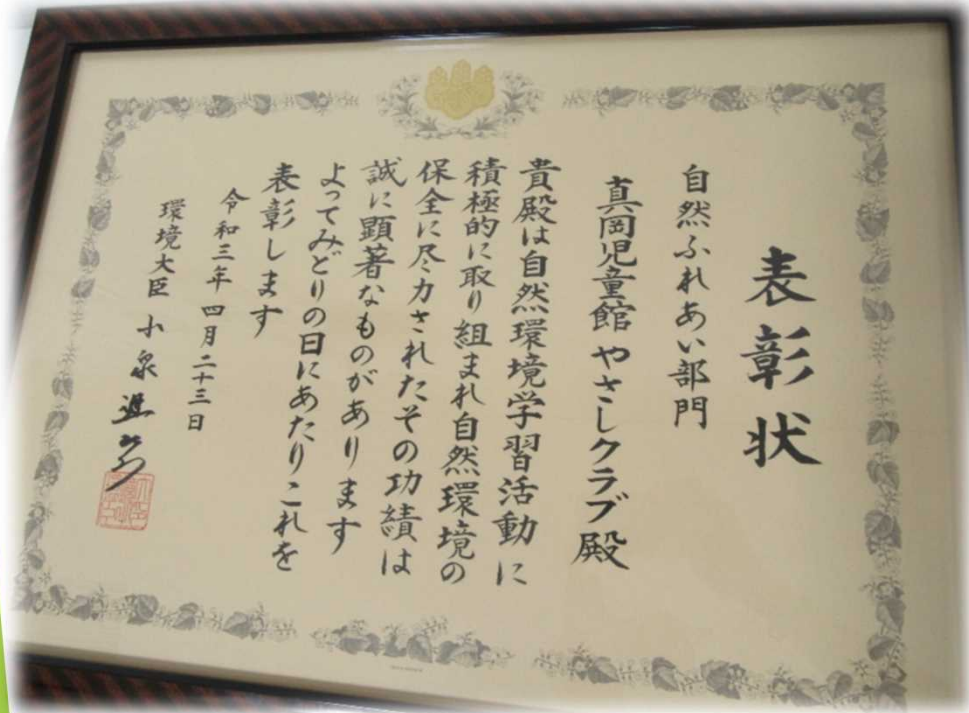 表彰状
自然ふれあい部門
真岡児童館 やさしクラブ殿
貴殿は自然環境学習活動に
積極的に取り組まれ自然環境の
保全に尽力されたその功績は
誠に顕著なものがあります
よってみどりの日にあたりこれを
表彰します
令和三年四月二十三日
環境大臣 小泉進次郎